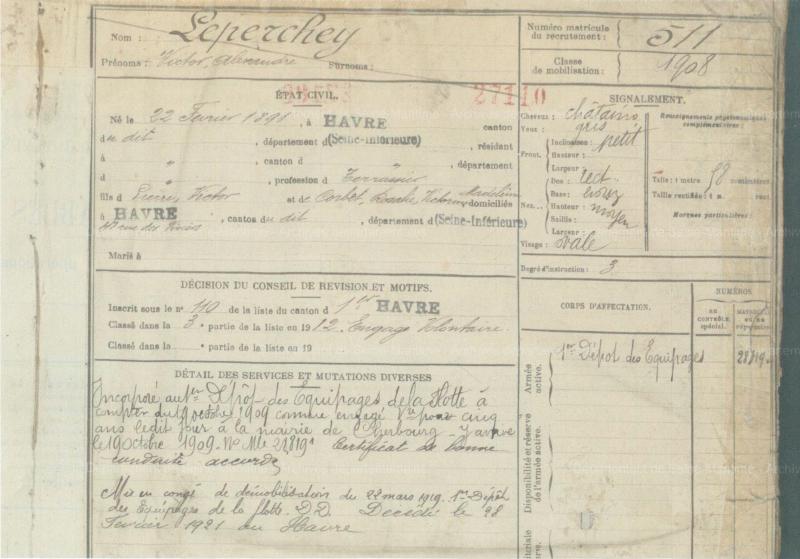 Nom : Leperchey
Prénoms : Victor, Alexandre Surnoms :
Numéro matricule du recrutement : 511
Classe de mobilisation : 1908
ÉTAT CIVIL. 27110
Né le 22 Février 1891, à HAVRE canton
du dit, département d (Seine-Inférieure), résidant
à " , canton d " , département
d " , profession d Terrassier
fils d Pierre, Victor et d Corbet, Rosalie, Victorine, Madeleine domiciliés
à HAVRE, canton du dit, département d (Seine-Inférieure)
rue des
Marié à
SIGNALEMENT.
Cheveux : châtains
Yeux : gris
Front. Inclinaison : petit
Hauteur :
Largeur :
Nez... Dos : rect
Base :
Hauteur : moyen
Saillie :
Largeur :
Visage : ovale
Renseignements physionomiques complémentaires :
Taille : 1 mètre 58 centimètres.
Taille rectifiée : 1 m.
Marques particulières :
Degré d'instruction : 3
DÉCISION DU CONSEIL DE REVISION ET MOTIFS.
Inscrit sous le n° 110 de la liste du canton d 1er HAVRE
Classé dans la 3e partie de la liste en 1912. Engagé Volontaire.
Classé dans la e partie de la liste en 19
CORPS D'AFFECTATION.
NUMÉROS.
AU CONTRÔLE spécial.
MATRICULE ou au répertoire
Armée active.
1er Dépôt des Equipages 28819
Disponibilité et réserve de l'armée active.
DÉTAIL DES SERVICES ET MUTATIONS DIVERSES
Incorporé au 1er Dépôt des Equipages de la Flotte à
compter du 19 octobre 1909 comme engagé Vre pour cinq
ans le dit jour à la mairie de Cherbourg. Arrivé
le 19 Octobre 1909. No Mle 28819 1 Certificat de bonne
conduite accordé
Mis en congé de démobilisation du 22 mars 1919. 1er Dépôt
des Equipages de la flotte. D.D. Décédé le 28
Février 1921 au Havre